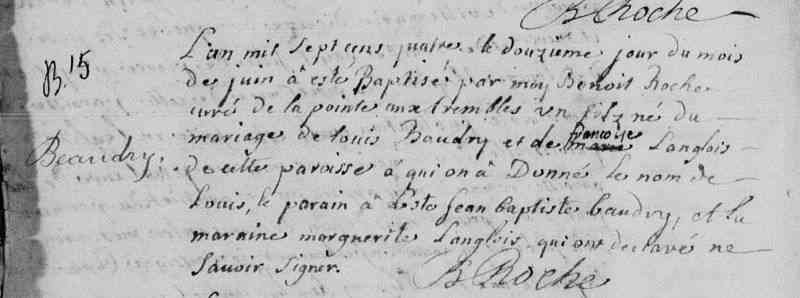 B Roche
B. 15
Beaudry.
L'an mil sept cens quatre le douzième jour du mois
de juin à esté Baptisé par moy Benoit Roche
curé de la pointe aux trembles un filz né du
mariage de Louis Baudry et de marie françoise Langlois
de cette paroisse à qui on à Donné le nom de
Louis, le parain à Esté Jean baptiste baudry, et la
maraine marguerite Langlois qui ont declaré ne
Sçavoir Signer.
B Roche